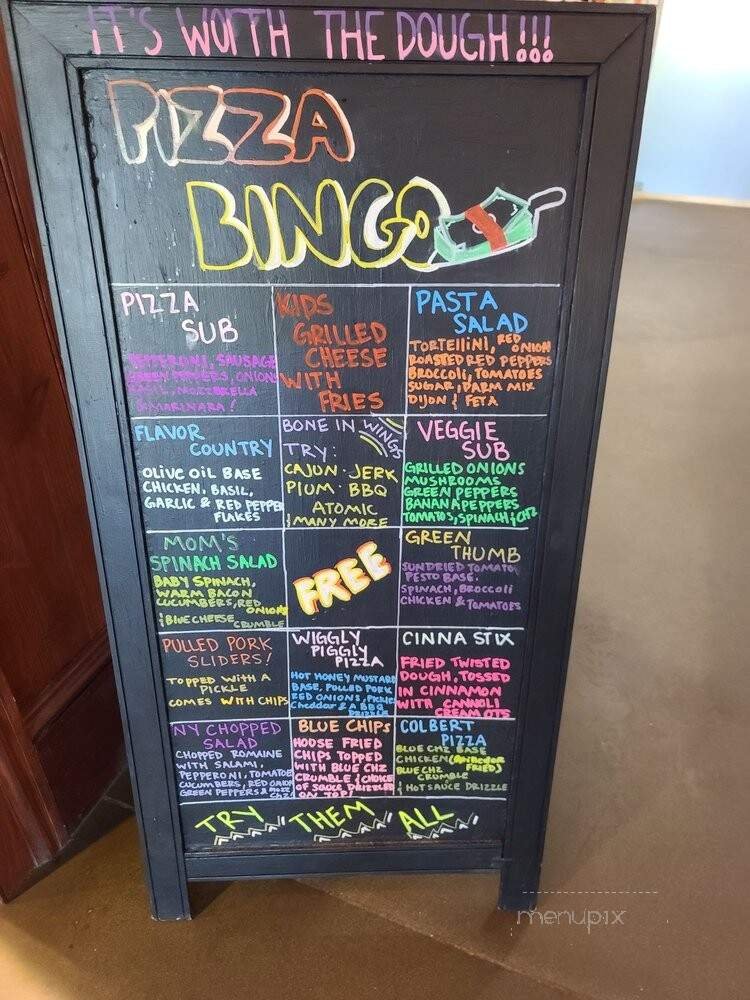 IT'S WORTH THE DOUGH!!!
PIZZA
BINGO
PIZZA
SUB
PEPPERONI, SAUSAGE
GREEN PEPPERS, ONIONS
MOZZERELLA
& MARINARA!
KIDS
GRILLED
CHEESE
WITH
FRIES
PASTA
SALAD
TORTELLINI, RED ONION
ROASTED RED PEPPERS
BROCCOLI, TOMATOES
SUGAR, PARM MIX
DIJON & FETA
FLAVOR
COUNTRY
OLIVE OIL BASE
CHICKEN, BASIL,
GARLIC & RED PEPPER
FLAKES
BONE IN WINGS
TRY:
CAJUN · JERK
PLUM · BBQ
ATOMIC
& MANY MORE
VEGGIE
SUB
GRILLED ONIONS
MUSHROOMS
GREEN PEPPERS
BANANA PEPPERS
TOMATOS, SPINACH & CHZ
MOM'S
SPINACH SALAD
BABY SPINACH,
WARM BACON
CUCUMBERS, RED ONIONS
& BLUE CHEESE CRUMBLE
FREE
GREEN
THUMB
SUNDRIED TOMATO
PESTO BASE.
SPINACH, BROCCOLI
CHICKEN & TOMATOES
PULLED PORK
SLIDERS!
TOPPED WITH A
PICKLE
COMES WITH CHIPS
WIGGLY
PIGGLY
PIZZA
HOT HONEY MUSTARD
BASE, PULLED PORK
RED ONIONS, PICKLES
Cheddar & A BBQ
DRIZZLE
CINNA STIX
FRIED TWISTED
DOUGH, TOSSED
IN CINNAMON
WITH CANNOLI
CREAM DTS
NY CHOPPED
SALAD
CHOPPED ROMAINE
WITH SALAMI,
PEPPERONI, TOMATOE
CUCUMBERS, RED ONION
GREEN PEPPERS & MOZZ
CHZ!
BLUE CHIPS
HOUSE FRIED
CHIPS TOPPED
WITH BLUE CHZ
CRUMBLE & CHOICE
OF SAUCE DRIZZLED
ON TOP!
COLBERT
PIZZA
BLUE CHZ BASE
CHICKEN (AIR FRIED)
BLUE CHZ
CRUMBLE
& HOT SAUCE DRIZZLE
TRY THEM ALL
menupix